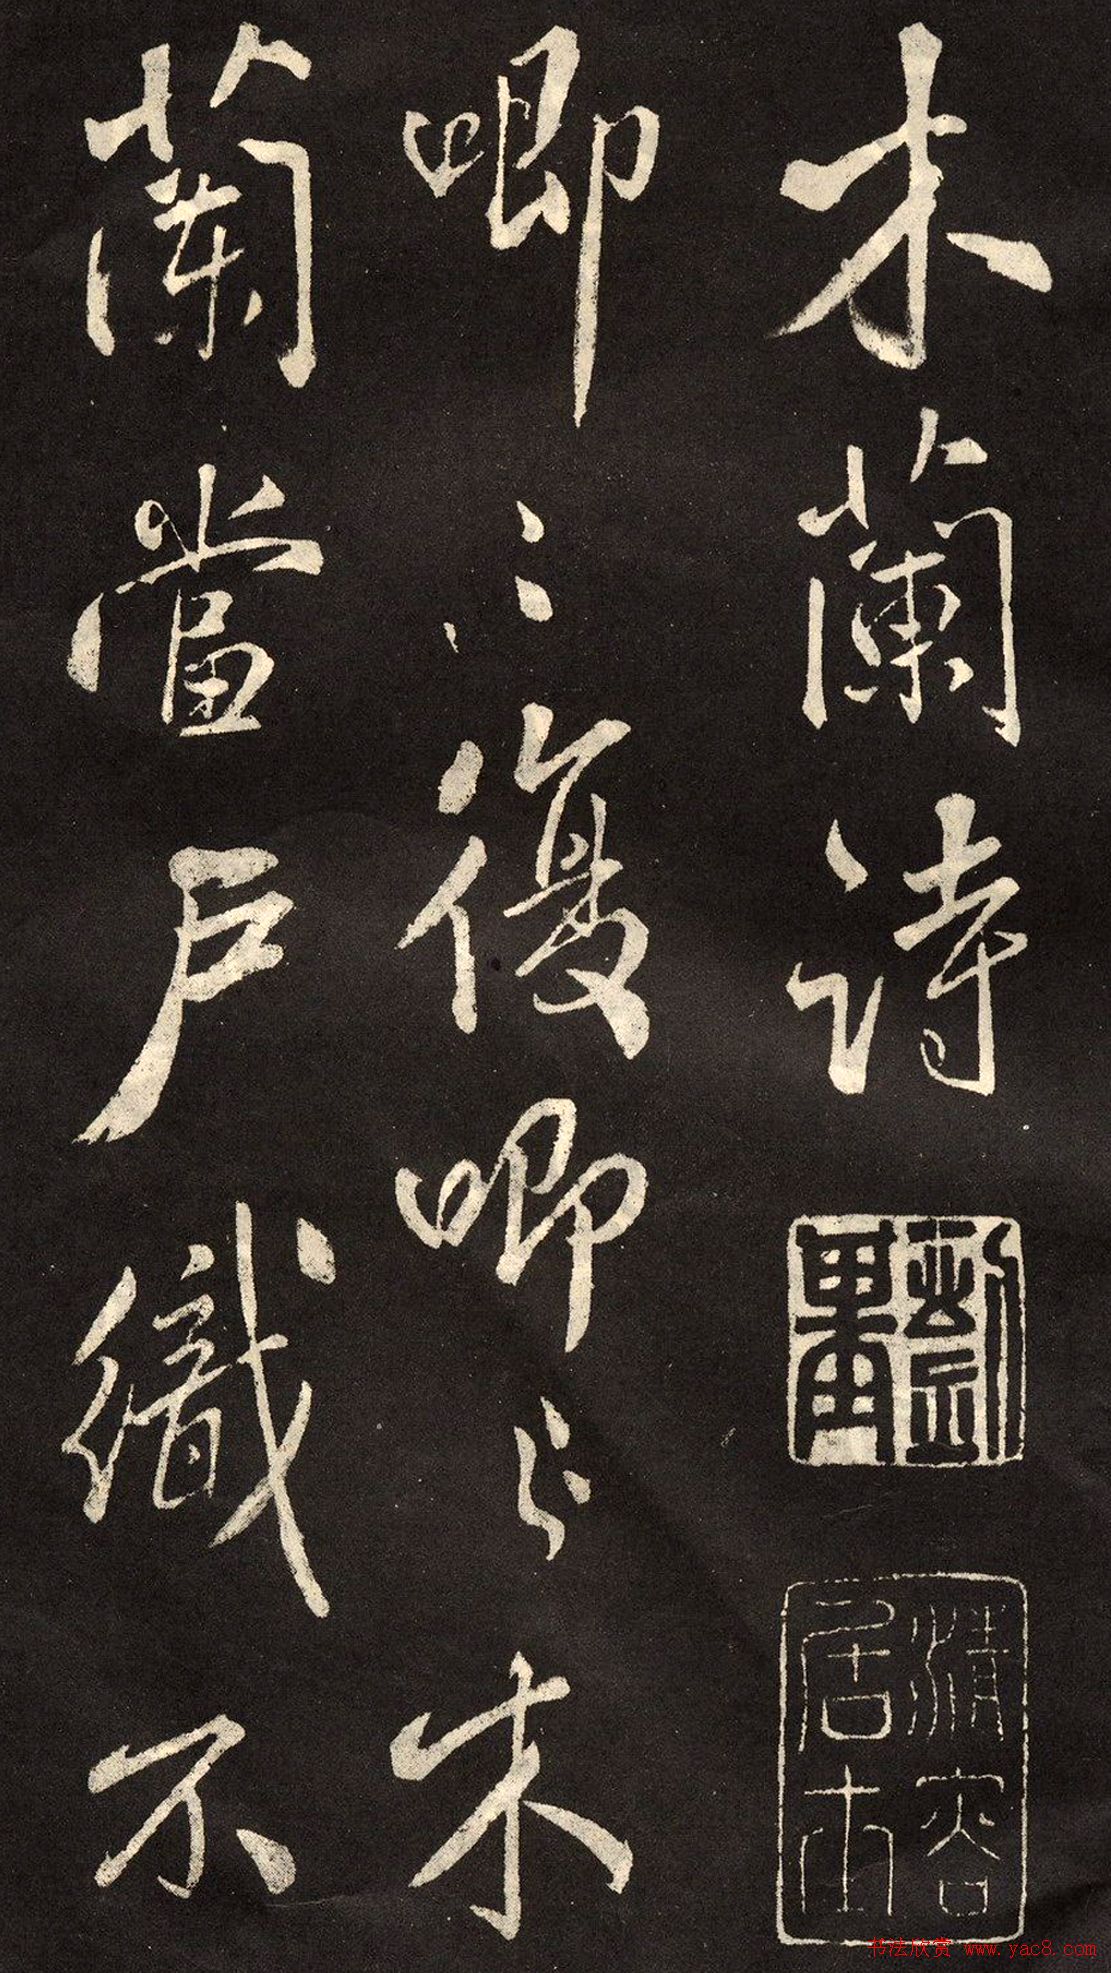 木蘭詩
唧〻復唧〻木
蘭當户織不
清容
居士
书法欣赏 www.yac8.com